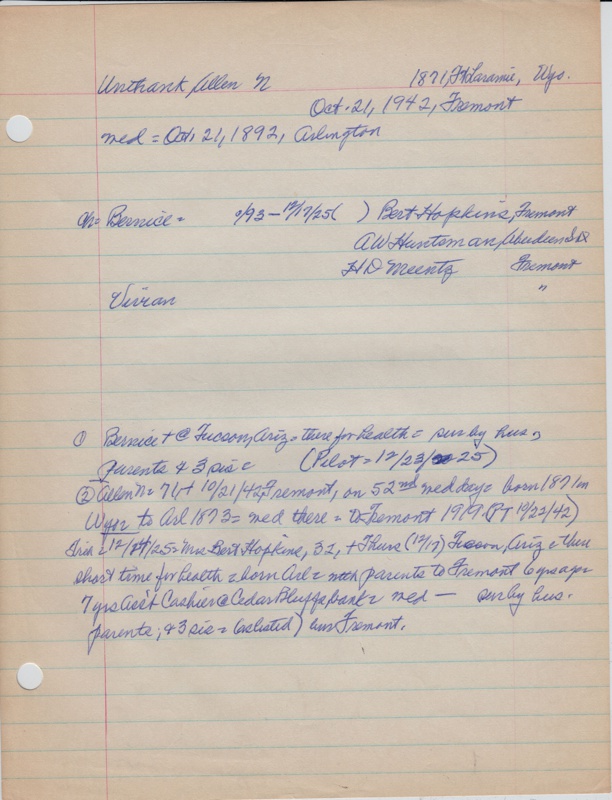 Unthank, Allen N 1871, Ft Laramie, Wyo.
Oct. 21, 1942, Fremont
med = Oct. 21, 1892, Arlington
ch = Bernice = 9/93 - 12/17/25 ( ) Bert Hopkins, Fremont
AW Huntsman, Aberdeen S.D.
H D Meentz Fremont
Vivian "
① Bernice + @ Tucson, Ariz = there for health = sur by hus,
parents & 3 sis = (Pilot = 12/23/25)
② Allen N = 71, + 10/21/42 @ Fremont, on 52nd wed day = born 1871 in
Wyo = to Arl 1873 = med there = to Fremont 1919. (PT 10/22/42)
12/24/25 = Mrs Bert Hopkins, 32, + Thurs (12/17) Tucson, Ariz = there
short time for health = born Arl = with parents to Fremont 6 yrs ago =
7 yrs Ass't Cashier @ Cedar Bluffs bank = med — sur by hus.
parents, & 3 sis = (as listed) bur Fremont.